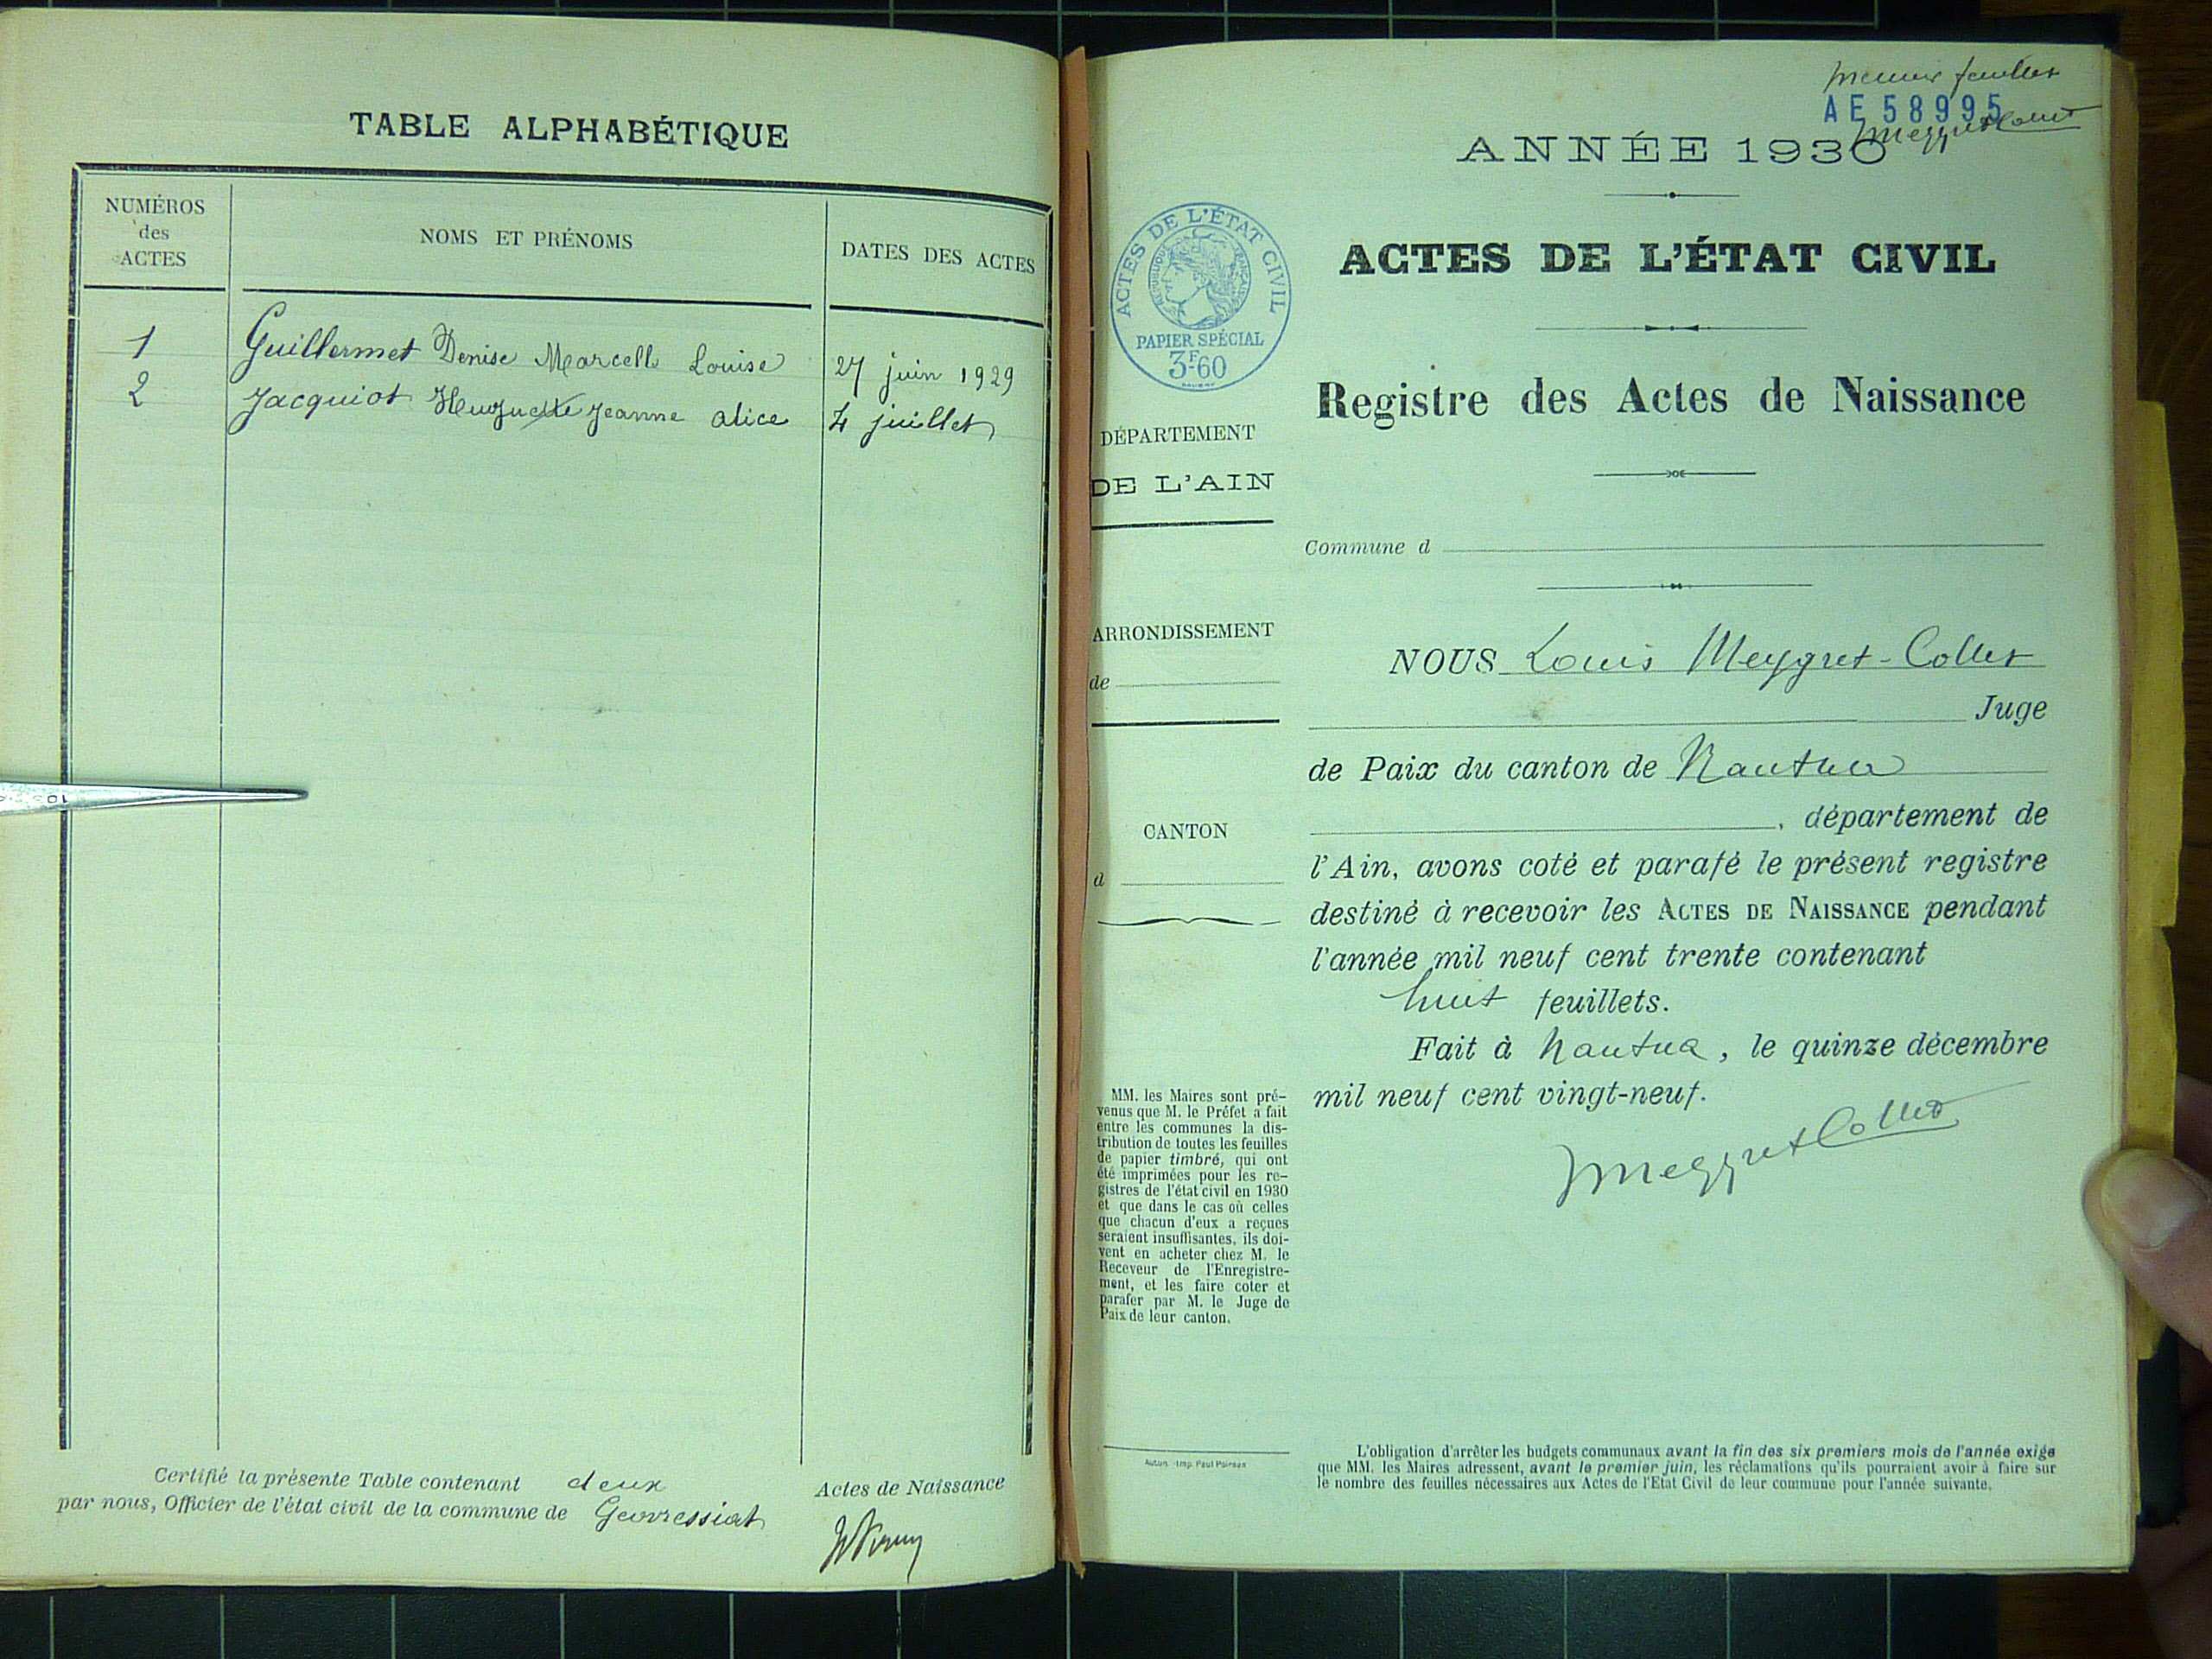 TABLE ALPHABÉTIQUE
NUMÉROS
des
ACTES
NOMS ET PRÉNOMS
DATES DES ACTES
1 Guillermet Denise Marcelle Louise 27 juin 1929
2 Jacquiot Huguette Jeanne Alice 4 juillet
Certifié la présente Table contenant deux Actes de Naissance
par nous, Officier de l'état civil de la commune de Geovressiat
premier feuillet
AE 58995
Meygret Collet
ANNÉE 1930
ACTES DE L'ÉTAT CIVIL
RÉPUBLIQUE FRANÇAISE
PAPIER SPÉCIAL
3F60
ACTES DE L'ÉTAT CIVIL
Registre des Actes de Naissance
DÉPARTEMENT
DE L'AIN
Commune d
ARRONDISSEMENT
de
CANTON
d
NOUS Louis Meygret-Collet
Juge
de Paix du canton de Nantua
, département de
l'Ain, avons coté et parafé le présent registre
destiné à recevoir les ACTES DE NAISSANCE pendant
l'année mil neuf cent trente contenant
huit feuillets.
Fait à Nantua, le quinze décembre
mil neuf cent vingt-neuf.
Meygret Collet
MM. les Maires sont pré-
venus que M. le Préfet a fait
entre les communes la dis-
tribution de toutes les feuilles
de papier timbré, qui ont
été imprimées pour les re-
gistres de l'état civil en 1930
et que dans le cas où celles
que chacun d'eux a reçues
seraient insuffisantes, ils doi-
vent en acheter chez M. le
Receveur de l'Enregistre-
ment, et les faire coter et
parafer par M. le Juge de
Paix de leur canton.
Autun. - Imp. Paul Poirson
L'obligation d'arrêter les budgets communaux avant la fin des six premiers mois de l'année exige
que MM. les Maires adressent, avant le premier juin, les réclamations qu'ils pourraient avoir à faire sur
le nombre des feuilles nécessaires aux Actes de l'Etat Civil de leur commune pour l'année suivante.